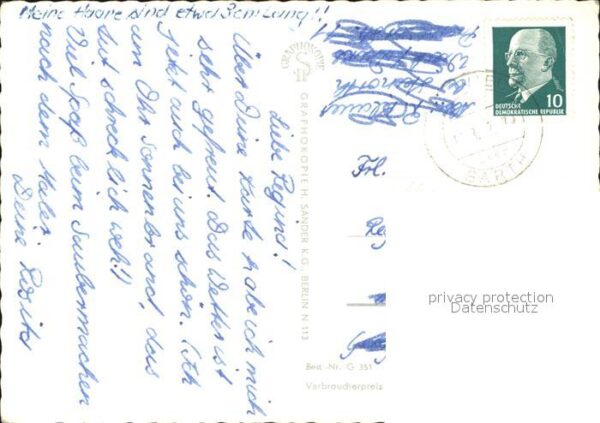 Meine Haare sind etwa 8cm lang!!
Liebe Regind!
Über Deine Karte habe ich mich
sehr gefreut. Das Wetter ist
jetzt auch bei uns schön. (Ich
am Ohr Sonnenbrand, das
tut schrecklich weh!)
Viel Spaß beim Saubermachen
nach dem Maler.
Deine
GRAPHOKOPIE
GRAPHOKOPIE H. SANDER K.G., BERLIN N 113
Best.-Nr. G 351
Verbraucherpreis
Frl.
DEUTSCHE
DEMOKRATISCHE REPUBLIK
10
BARTH
privacy protection
Datenschutz